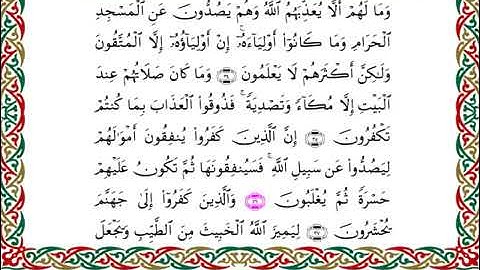 وَمَا لَهُمْ أَلَّا يُعَذِّبَهُمُ ٱللَّهُ وَهُمْ يَصُدُّونَ عَنِ ٱلْمَسْجِدِ
ٱلْحَرَامِ وَمَا كَانُوٓا۟ أَوْلِيَآءَهُۥٓ ۚ إِنْ أَوْلِيَآؤُهُۥٓ إِلَّا ٱلْمُتَّقُونَ
وَلَٰكِنَّ أَكْثَرَهُمْ لَا يَعْلَمُونَ وَمَا كَانَ صَلَاتُهُمْ عِندَ
ٱلْبَيْتِ إِلَّا مُكَآءً وَتَصْدِيَةً ۚ فَذُوقُوا۟ ٱلْعَذَابَ بِمَا كُنتُمْ
تَكْفُرُونَ إِنَّ ٱلَّذِينَ كَفَرُوا۟ يُنفِقُونَ أَمْوَٰلَهُمْ
لِيَصُدُّوا۟ عَن سَبِيلِ ٱللَّهِ ۚ فَسَيُنفِقُونَهَا ثُمَّ تَكُونُ عَلَيْهِمْ
حَسْرَةً ثُمَّ يُغْلَبُونَ وَٱلَّذِينَ كَفَرُوٓا۟ إِلَىٰ جَهَنَّمَ
يُحْشَرُونَ لِيَمِيزَ ٱللَّهُ ٱلْخَبِيثَ مِنَ ٱلطَّيِّبِ وَيَجْعَلَ